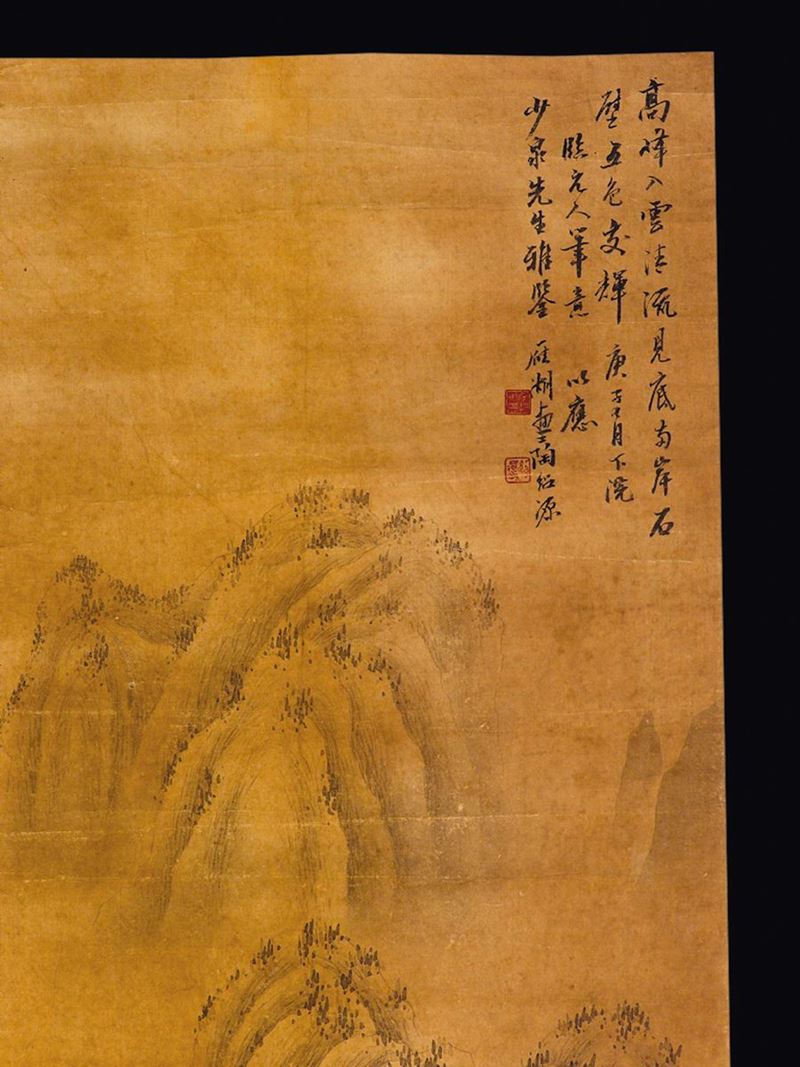 高峰入雲清流見底兩岸石
壁五色交輝 庚子七月下浣
臨元人筆意 以應
少泉先生雅鑒 雁湖畫士陶紹源